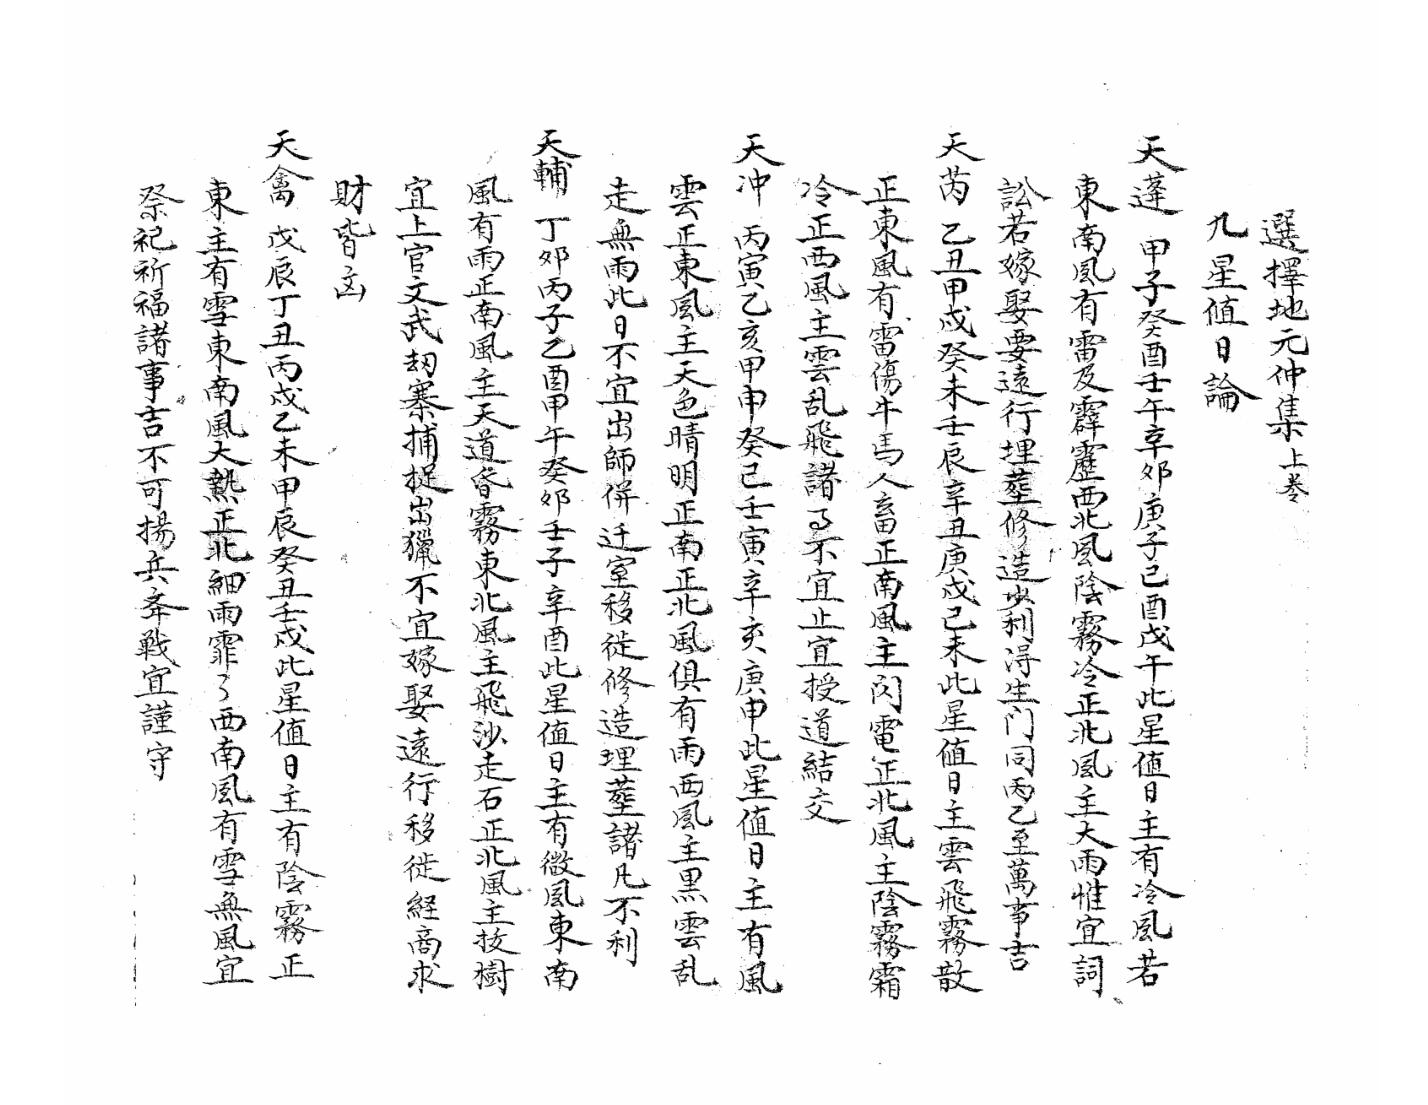 選擇地元仲集上卷
九星值日論
天蓬 甲子癸酉壬午辛卯庚子己酉戊午此星值日主有冷風若
東南風有雷及霹靂西北風陰霧冷正北風主大雨惟宜詞
訟若嫁娶要遠行埋葬修造少利得生门同丙乙至萬事吉
天芮 乙丑甲戍癸未壬辰辛丑庚戍己未此星值日主雲飛霧散
正東風有雷傷牛馬人畜正南風主闪電正北風主陰霧霜
冷正西風主雲乱飛諸事不宜止宜授道結交
天冲 丙寅乙亥甲申癸巳壬寅辛亥庚申此星值日主有風
雲正東風主天色晴明正南正北風俱有雨西風主黑雲乱
走無雨此日不宜出師併迁室移徙修造埋葬諸凡不利
天輔 丁卯丙子乙酉甲午癸卯壬子辛酉此星值日主有微風東南
風有雨正南風主天道昏霧東北風主飛沙走石正北風主拔樹
宜上官文武刼寨捕捉出獵不宜嫁娶遠行移徙経商求
財皆凶
天禽 戊辰丁丑丙戍乙未甲辰癸丑壬戍此星值日主有陰霧正
東主有雪東南風大熱正北細雨霏々西南風有雪無風宜
祭祀祈福諸事吉不可揚兵爭戦宜謹守